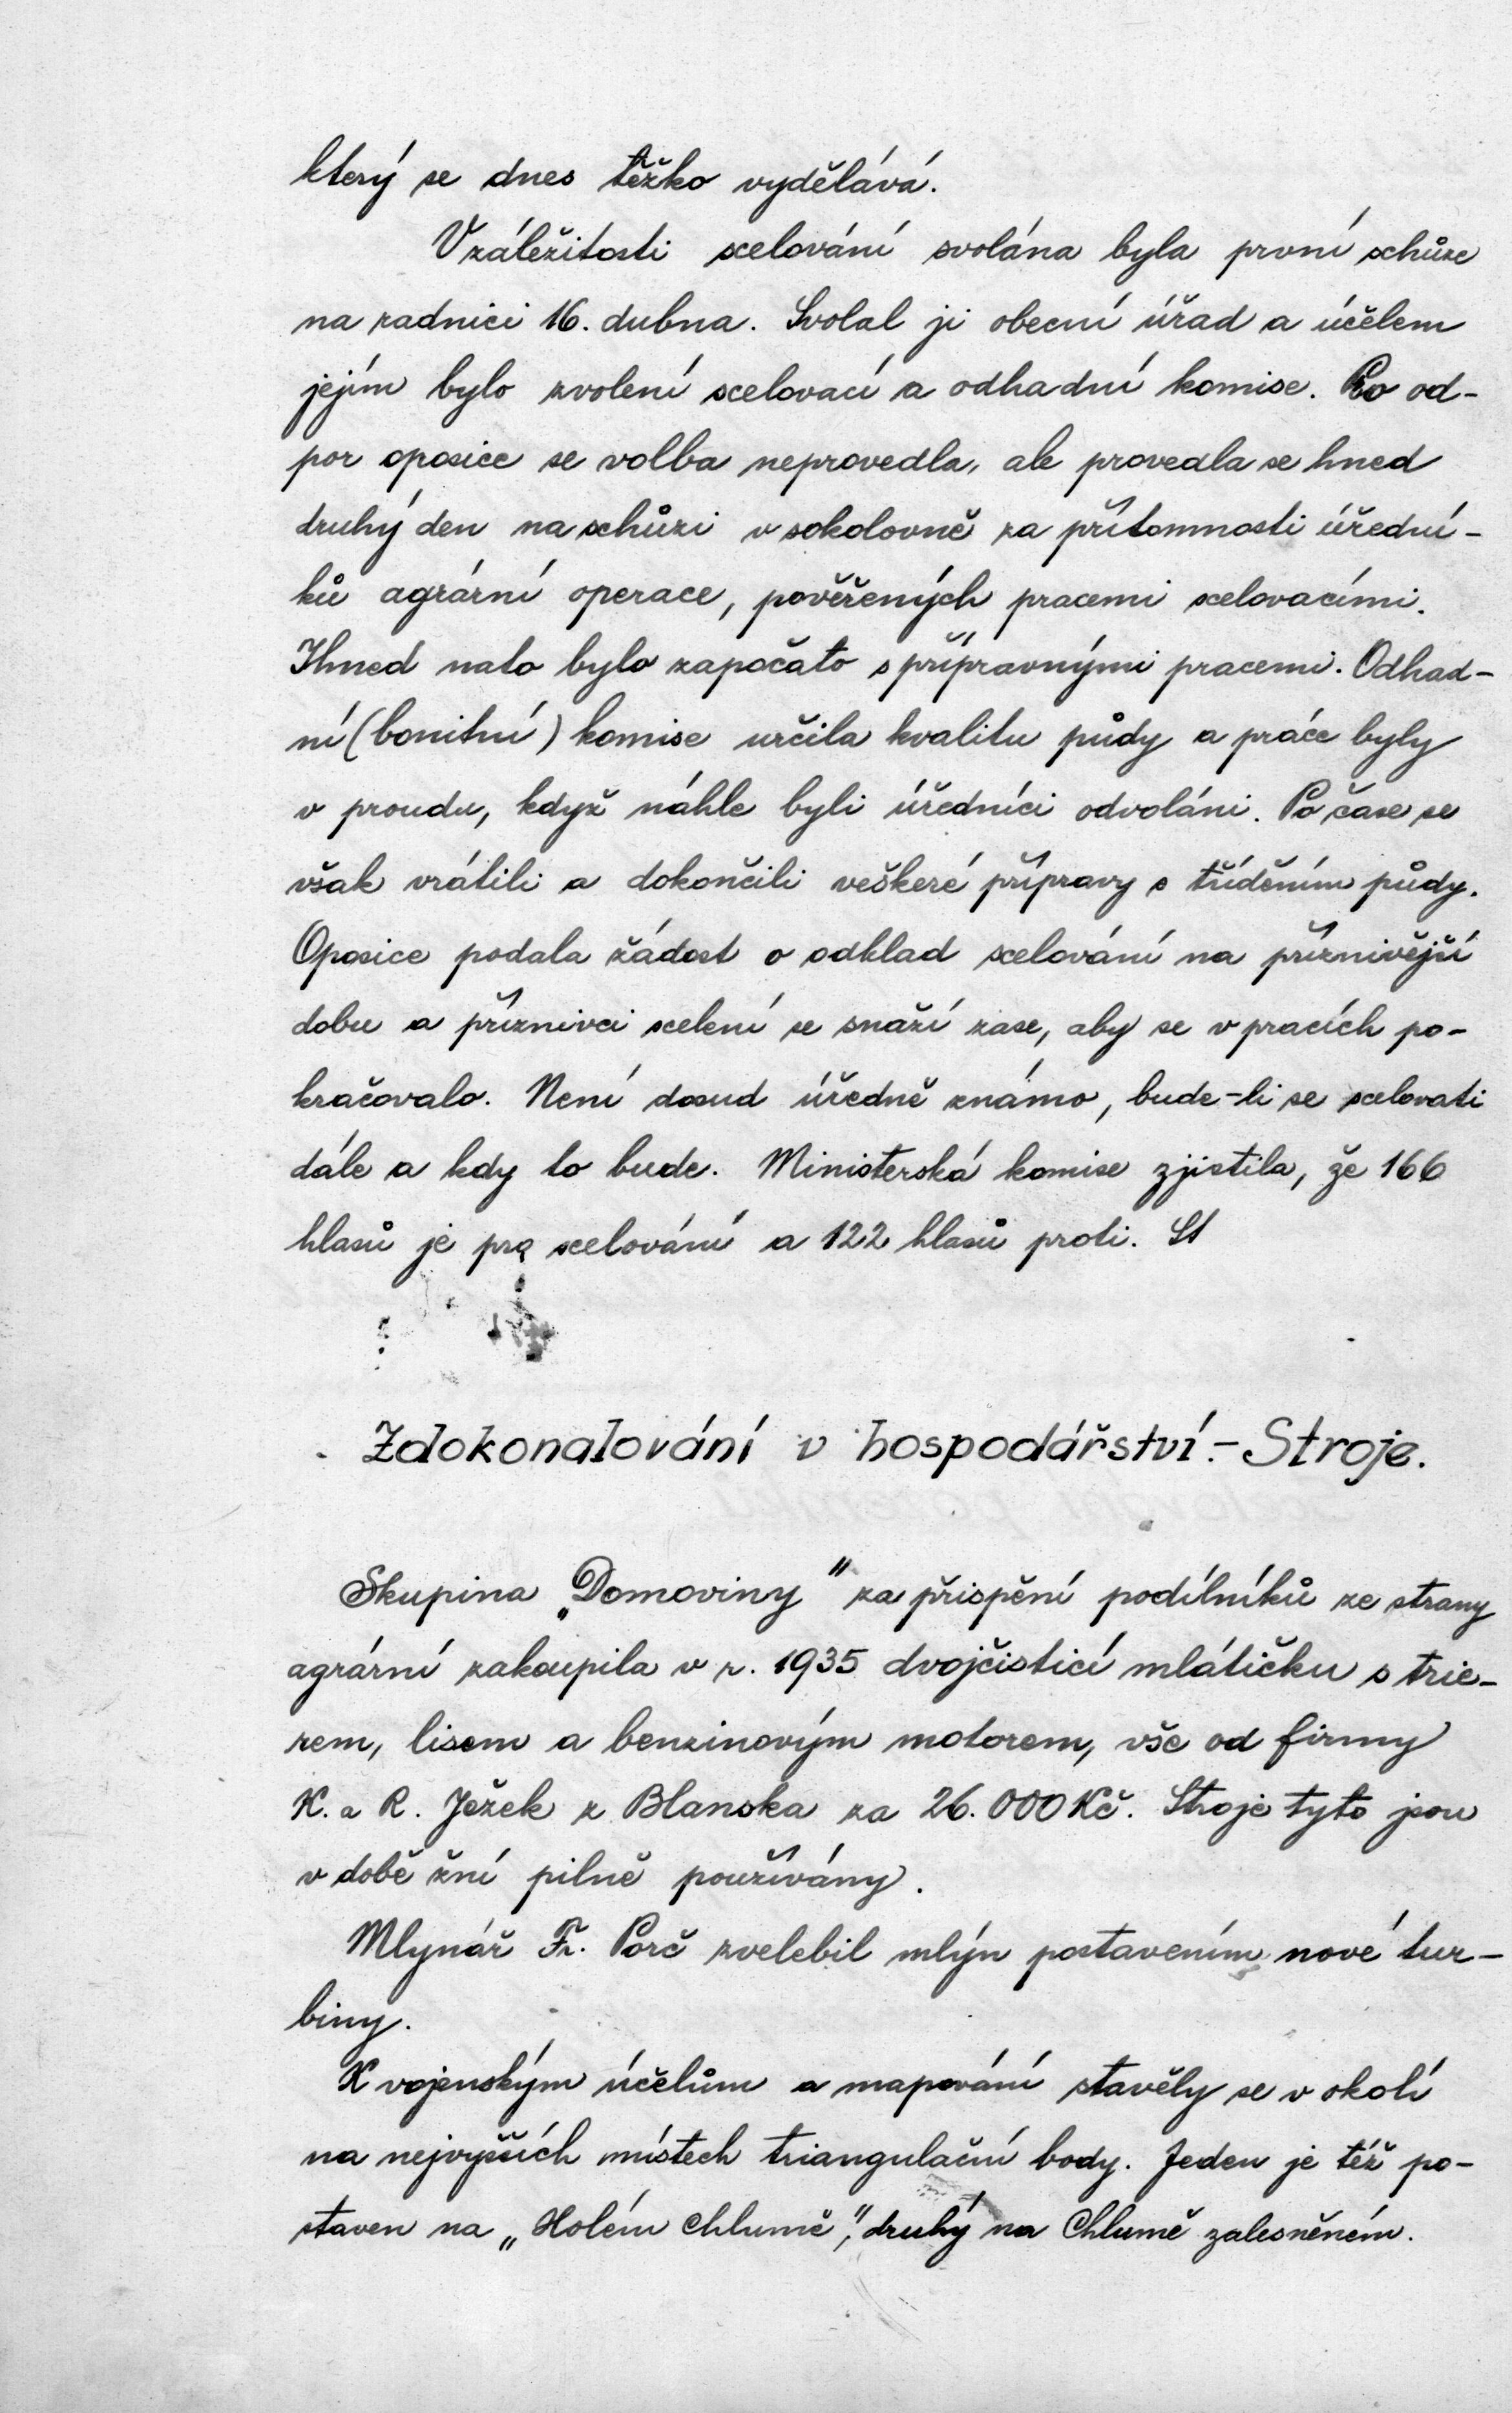 který se dnes těžko vydělává.
V záležitosti scelování svolána byla první schůze
na radnici 16. dubna. Svolal ji obecní úřad a účelem
jejím bylo zvolení scelovací a odhadní komise. Pro od-
por oposice se volba neprovedla, ale provedla se hned
druhý den na schůzi v sokolovně za přítomnosti úřední-
ků agrární operace, pověřených pracemi scelovacími.
Ihned nato bylo započato s přípravnými pracemi. Odhad-
ní (bonitní) komise určila kvalitu půdy a práce byly
v proudu, když náhle byli úředníci odvoláni. Po čase se
však vrátili a dokončili veškeré přípravy s tříděním půdy.
Oposice podala žádost o odklad scelování na příznivější
dobu a příznivci scelení se snaží zase, aby se v pracích po-
kračovalo. Není dosud úředně známo, bude-li se scelovati
dále a kdy to bude. Ministerská komise zjistila, že 166
hlasů je pro scelování a 122 hlasů proti. St
Zdokonalování v hospodářství. - Stroje.
Skupina „Domoviny" za přispění podílníků ze strany
agrární zakoupila v r. 1935 dvojčisticí mlátičku s trie-
rem, lisem a benzinovým motorem, vše od firmy
K. a R. Ježek z Blanska za 26.000 Kč. Stroje tyto jsou
v době žní pilně používány.
Mlynář Fr. Porč zvelebil mlýn postavením nové tur-
biny.
K vojenským účelům a mapování stavěly se v okolí
na nejvyšších místech triangulační body. Jeden je též po-
staven na „Holém Chlumě", druhý na Chlumě zalesněném.